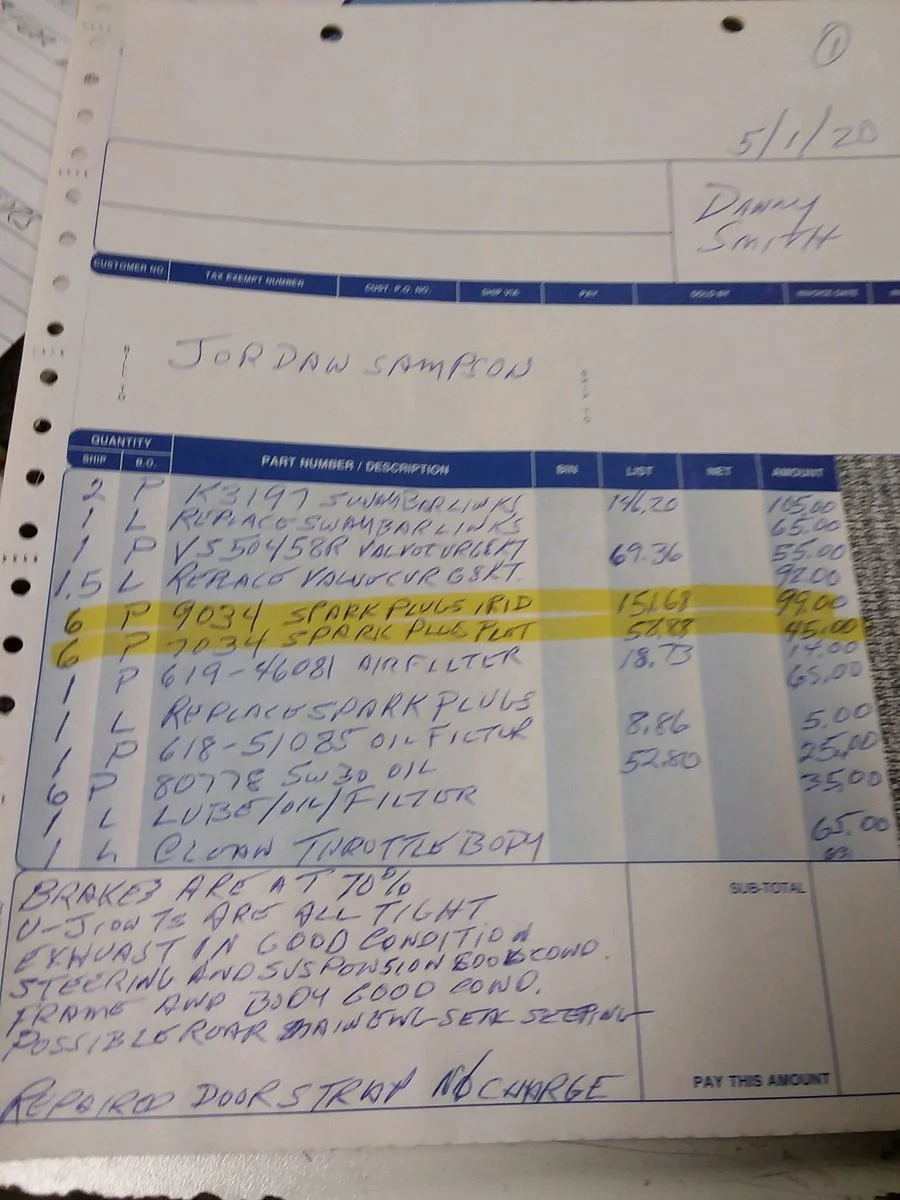 ①
5/1/20
DANNY
SMITH
CUSTOMER NO. TAX EXEMPT NUMBER CUST. P.O. NO. SHIP VIA PAY SOLD BY INVOICE DATE
BILL TO JORDAN SAMPSON
QUANTITY
SHIP B.O. PART NUMBER / DESCRIPTION BIN LIST NET AMOUNT
2 P K3197 SWAYBARLINKS 146.20 105.00
1 L REPLACE SWAYBARLINKS 65.00
1 P VS50458R VALVECVRGSKT 69.36 55.00
1.5 L REPLACE VALVECVRGSKT. 92.00
6 P 9034 SPARKPLUGS IRID 151.68 99.00
6 P 7034 SPARK PLUG PLAT 58.88 45.00
1 P 619-46081 AIRFILTER 18.73 14.00
1 L REPLACE SPARK PLUGS 65.00
1 P 618-51085 OIL FILTER 8.86 5.00
6 P 80778 5W30 OIL 52.80 25.00
1 L LUBE/OIL/FILTER 35.00
1 L CLEAN THROTTLE BODY 65.00
SUB-TOTAL
BRAKES ARE AT 70%
U-JIONTS ARE ALL TIGHT
EXHUAST IN GOOD CONDITION
STEERING AND SUSPENSION GOOD COND.
FRAME AND BODY GOOD COND.
POSSIBLE REAR MAIN ENG SEAL SEEPING
PAY THIS AMOUNT
REPAIRED DOOR STRAP N/CHARGE